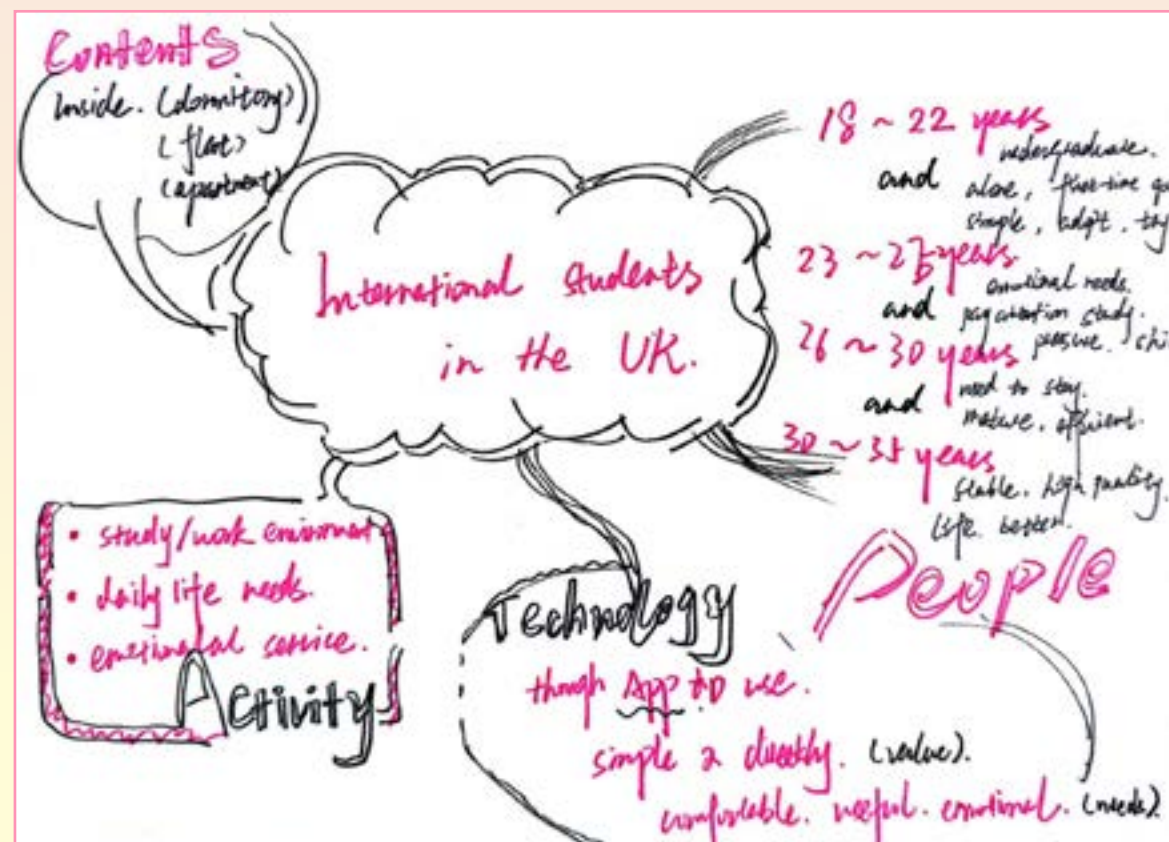 Contents
Inside. (dormitory)
(flat)
(apartment)
International students
in the UK.
18 ~ 22 years
undergraduate.
and alone,
simple, adapt,
23 ~ 25 years
emotional needs.
and pay attention study.
26 ~ 30 years
need to stay.
and mature, efficient.
30 ~ 35 years
stable. high quality.
life better.
People
• study/work enviroment
• daily life needs.
• emotional service.
Activity
Technology
though App to use.
simple & directly. (value).
comfortable. useful. emotional. (needs).